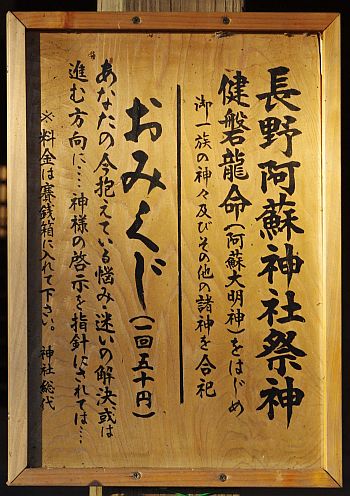 長野阿蘇神社祭神
健磐龍命(阿蘇大明神)をはじめ
御一族の神々及びその他の諸神を合祀
おみくじ(一回五十円)
あなたの今抱えている悩み・迷いの解決、或は
進む方向に‥‥神様の啓示を指針にされては‥‥
※料金は賽銭箱に入れて下さい。 神社総代